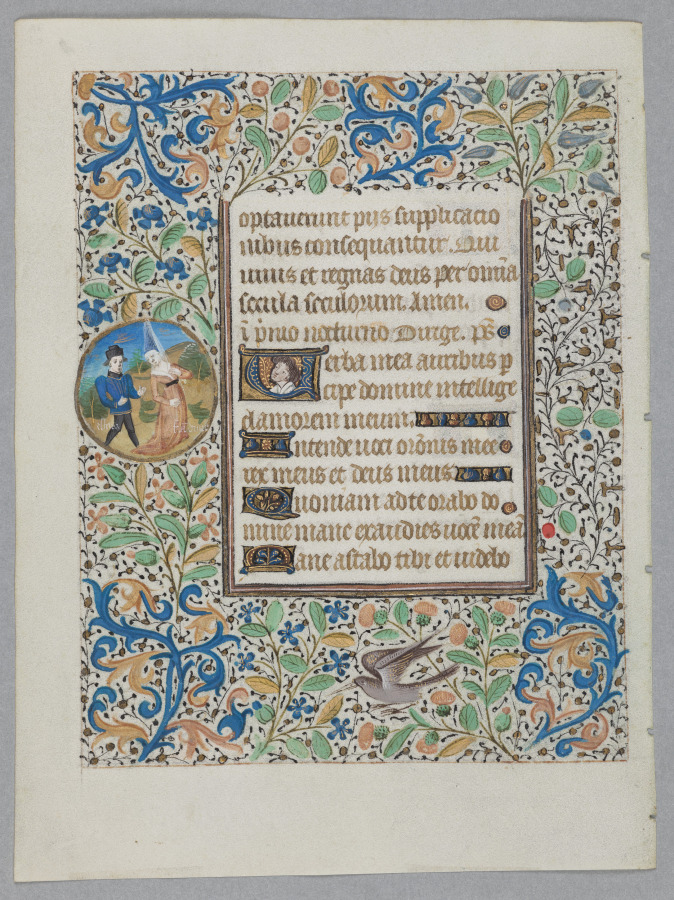 optauerunt pijs supplicatio
nibus consequantur. Qui
uiuis et regnas deus per omnia
secula seculorum. Amen.
i p̄mo nocturno Dirige. pS̄
Verba mea auribus p
cipe domine intellige
clamorem meum.
Intende uoci or̄onis mee
rex meus et deus meus
Quoniam ad te orabo do
mine mane exaudies uocē meā
Mane astabo tibi et uidebo